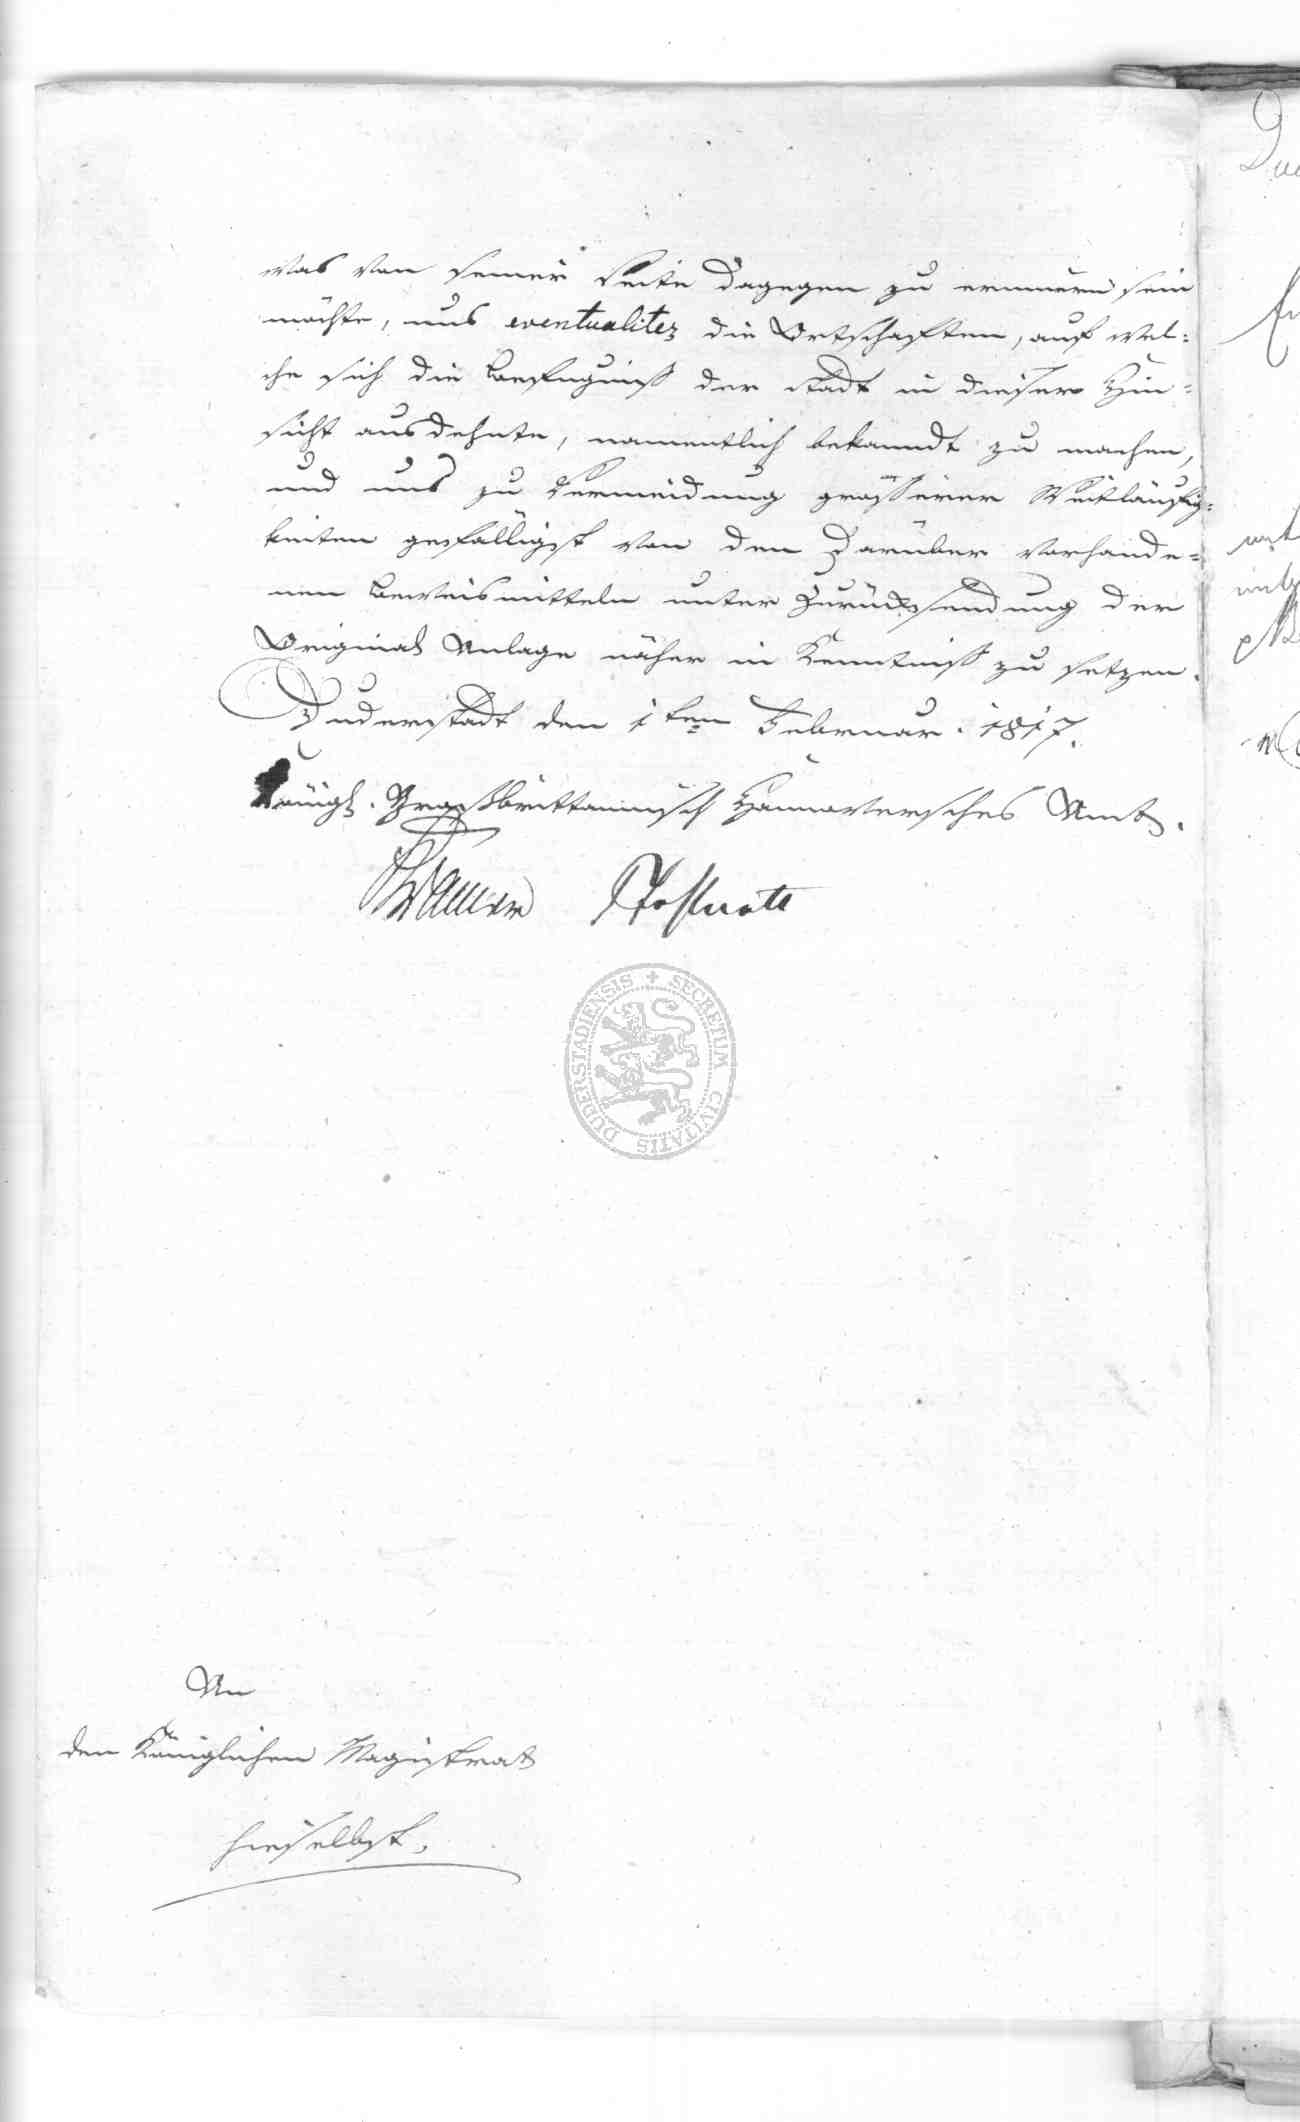 was von seiner Seite dagegen zu erinnern sein
möchte, uns eventualiter die Ortschaften, auf wel-
che sich die Befugniß der Stadt in dieser Hin-
sicht ausdehnte, namentlich bekanndt zu machen,
und uns zu Vermeidung größerer Weitläufig-
keiten gefälligst von den darüber vorhande-
nen Beweismitteln unter Zurücksendung der
Original Anlage näher in Kenntniß zu setzen.
Duderstadt den 1ten Februar. 1817.
Königl. Großbrittannisch Hannoversches Amt.
DUDERSTADIENSIS + SECRETUM CIVITATIS
An
den Königlichen Magistrat
hieselbst.